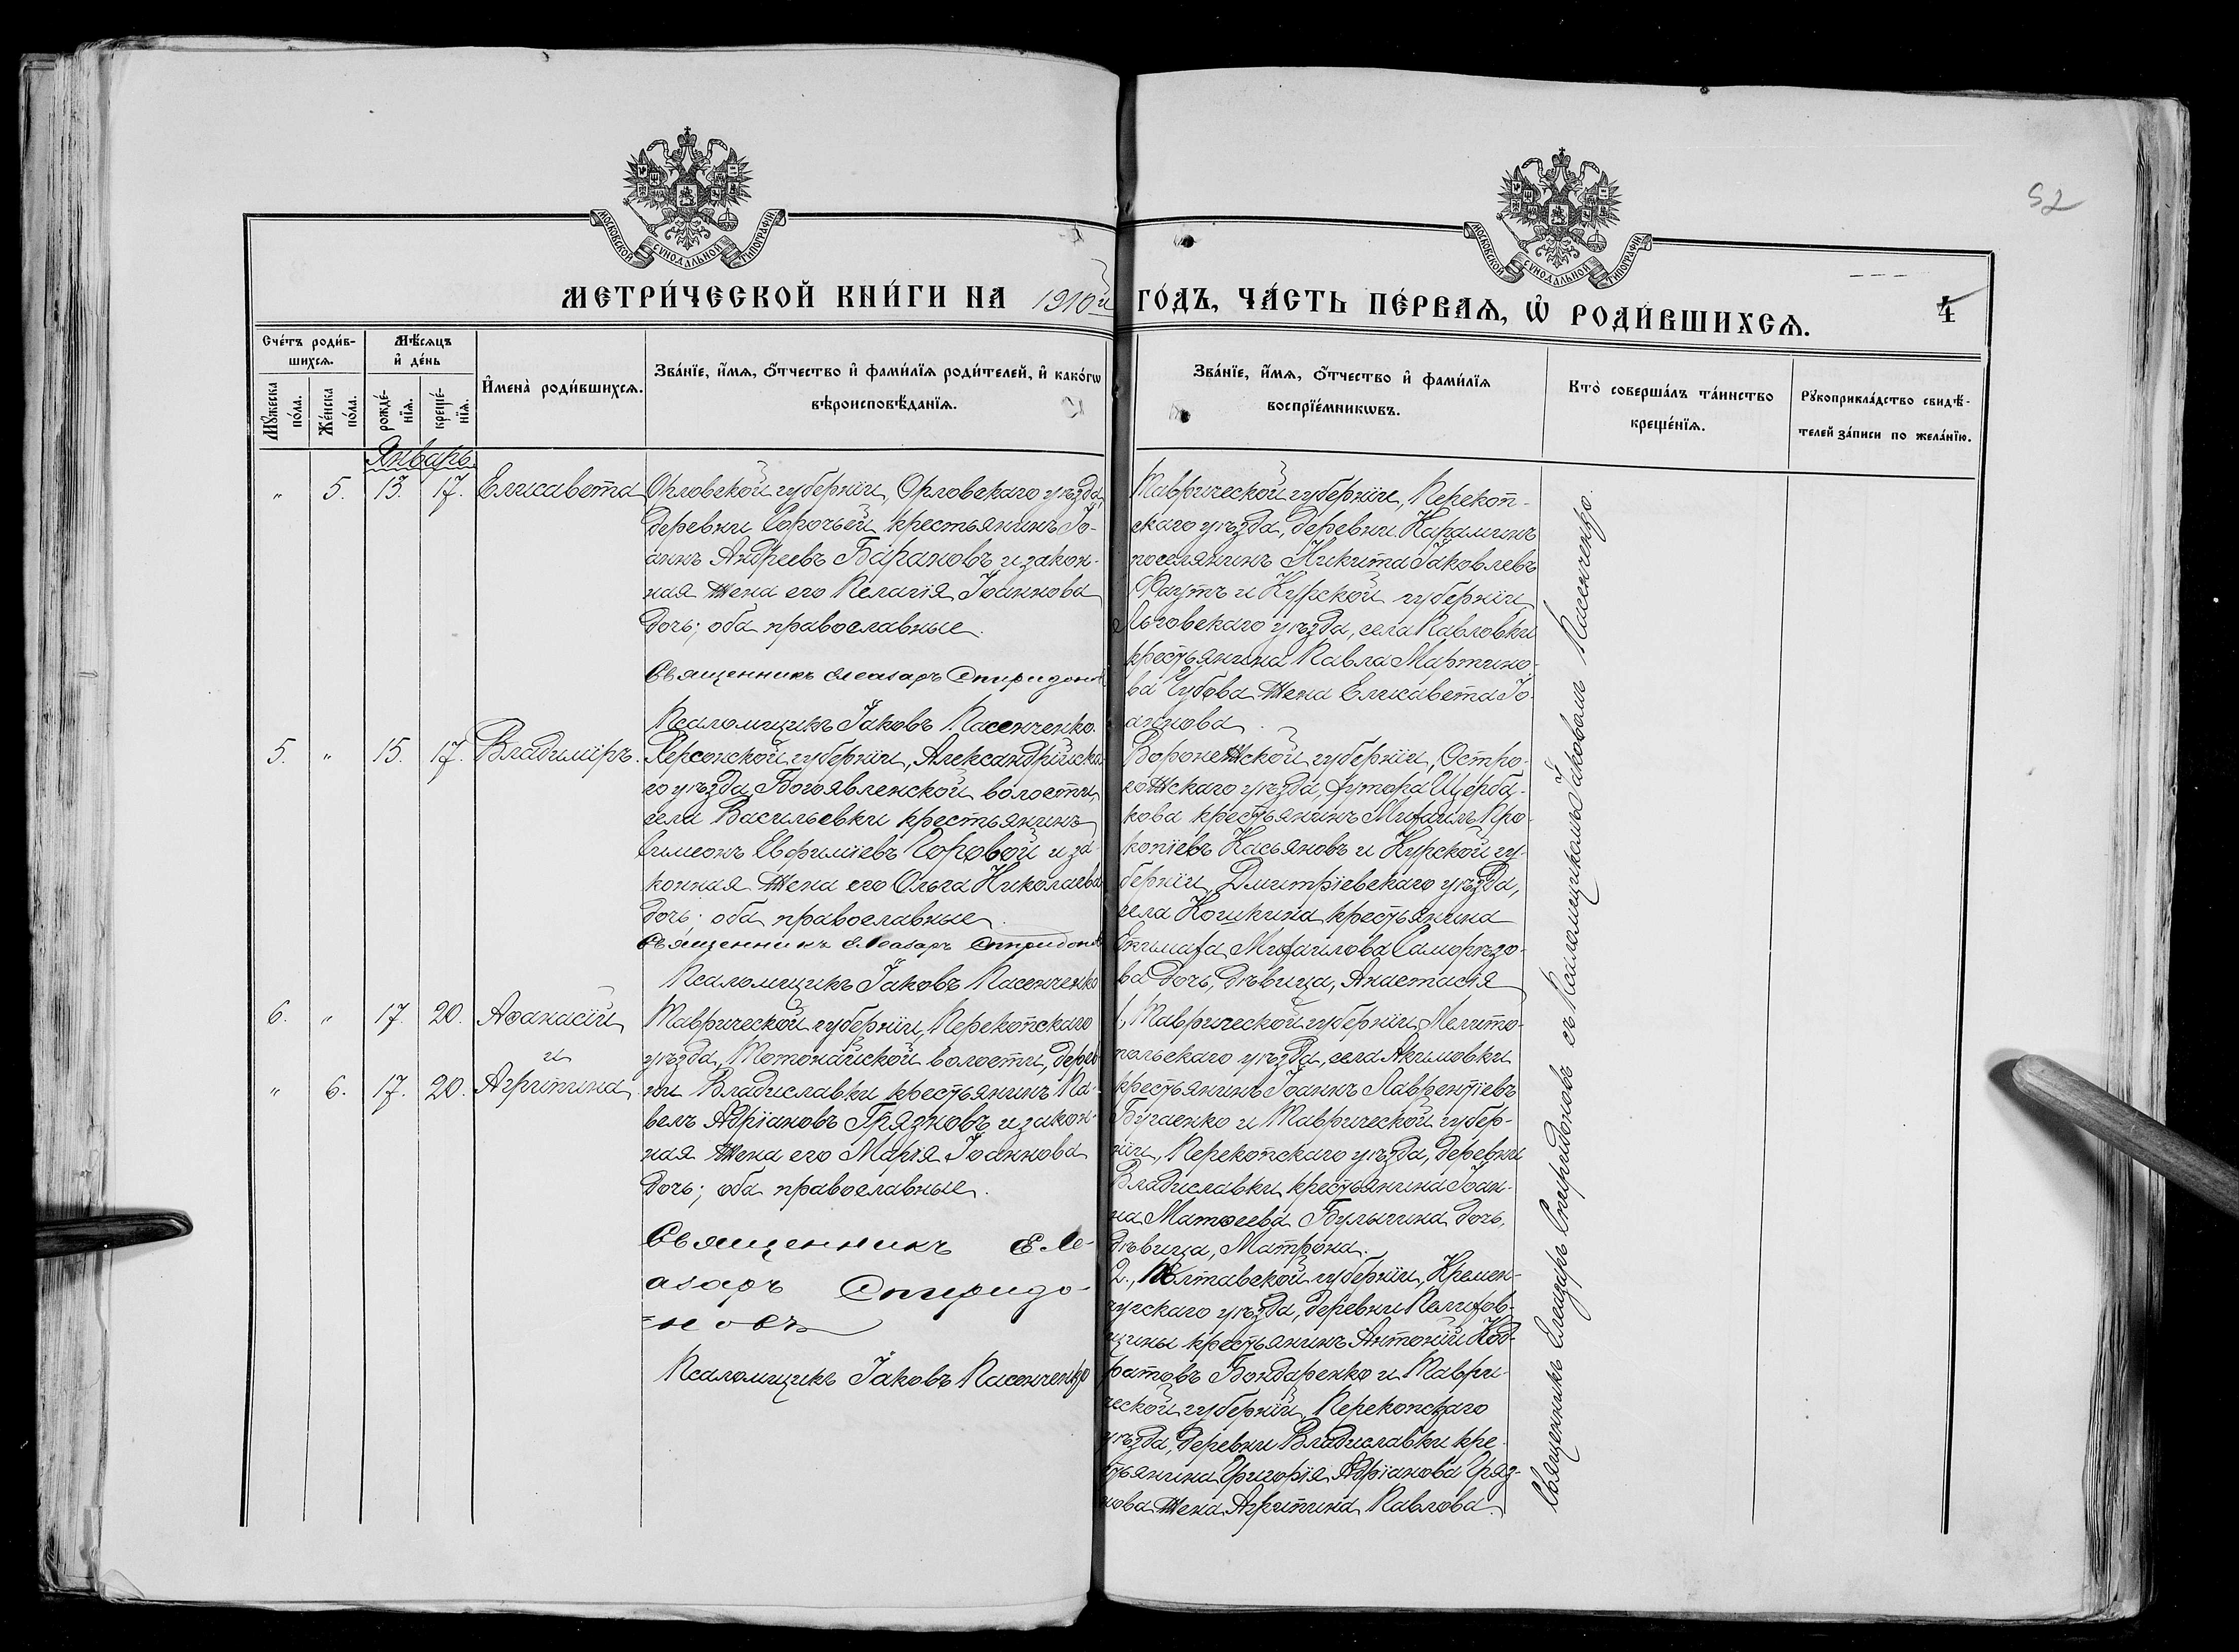 52
МОСКОВСКОЙ СУНОДАЛЬНОЙ ТИПОГРАФІИ
МОСКОВСКОЙ СУНОДАЛЬНОЙ ТИПОГРАФІИ
МЕТРИ́ЧЕСКОЙ КНИ́ГИ НА 1910й ГО́ДЪ, ЧА́СТЬ ПЕ́РВАѦ, Ѡ҆ РОДИ́ВШИХСѦ.
4
Сче́тъ роди́в-
шихсѧ.
Мꙋ́жеска
по́ла.
Же́нска
по́ла.
Мѣ́сѧцъ
и҆ де́нь
рожде́-
нїѧ.
креще́-
нїѧ.
И҆мена̀ роди́вшихсѧ.
Зва́нїе, и҆́мѧ, ѻ҆́тчество и҆ фами́лїѧ роди́телей, и҆ како́гѡ
вѣроисповѣ́данїѧ.
Зва́нїе, и҆́мѧ, ѻ҆́тчество и҆ фами́лїѧ
воспрїе́мникѡвъ.
Кто̀ соверша́лъ та́инство
креще́нїѧ.
Рꙋкоприкла́дство свидѣ́-
телей за́писи по жела́нїю.
Январь.
" 5. 13. 17. Елисавета
Орловской губерніи, Орловскаго уѣзда,
деревни Сорочьей крестьянинъ Іо-
аннъ Андреевъ Барановъ и закон-
ная жена его Пелагія Іоаннова
дочь; оба православные.
Священникъ Елеазаръ Спиридоновъ
Псаломщикъ Іаковъ Пасенченко.
Таврической губерніи, Перекоп-
скаго уѣзда, деревни Карамитъ
поселянинъ Никита Іаковлевъ
Фаутъ и Курской губерніи
Льговскаго уѣзда, села Павловки
крестьянина Павла Мартино-
ва Губова жена Елисавета Іо-
аннова.
5. " 15. 17. Владиміръ.
Херсонской губерніи, Александрійска-
го уѣзда, Богоявленской волости,
села Васильевки крестьянинъ
Симеонъ Евфиміевъ Горовой и за-
конная жена его Ольга Николаева
дочь; оба православные.
Священникъ Елеазаръ Спиридоновъ
Псаломщикъ Іаковъ Пасенченко
Воронежской губерніи, Остро-
гожскаго уѣзда, хутора Щерба-
кова крестьянинъ Михаилъ Про-
копіевъ Касьяновъ и Курской гу-
берніи, Дмитріевскаго уѣзда,
села Кошкина крестьянина
Епимаха Михаилова Саморядо-
ва дочь, дѣвица, Анастасія
6. " 17. 20. Аѳанасій
и
" 6. 17. 20. Агрипина
Таврической губерніи, Перекопскаго
уѣзда, Тотонайской волости, дерев-
ни Владиславки крестьянинъ Па-
велъ Адріановъ Грязновъ и закон-
ная жена его Марія Іоаннова
дочь; оба православные.
Священникъ Еле-
азаръ Спиридо-
новъ
Псаломщикъ Іаковъ Пасенченко
1, Таврической губерніи, Мелито-
польскаго уѣзда, села Акимовки
крестьянинъ Іоаннъ Лаврентіевъ
Бугаенко и Таврической губер-
ніи, Перекопскаго уѣзда, деревни
Владиславки, крестьянина Іоан-
на Матѳеева Булыгина дочь,
дѣвица, Матрона.
2., Полтавской губерніи, Кремен-
чугскаго уѣзда, деревни Пелихов-
щины крестьянинъ Антоній Код-
ратовъ Бондаренко и Таври-
ческой губерніи, Перекопскаго
уѣзда, деревни Владиславки кре-
стьянина Григорія Адріанова Гряз-
нова жена Агрипина Павлова.
Священникъ Елеазаръ Спиридоновъ съ Псаломщикомъ Іаковомъ Пасенченко.